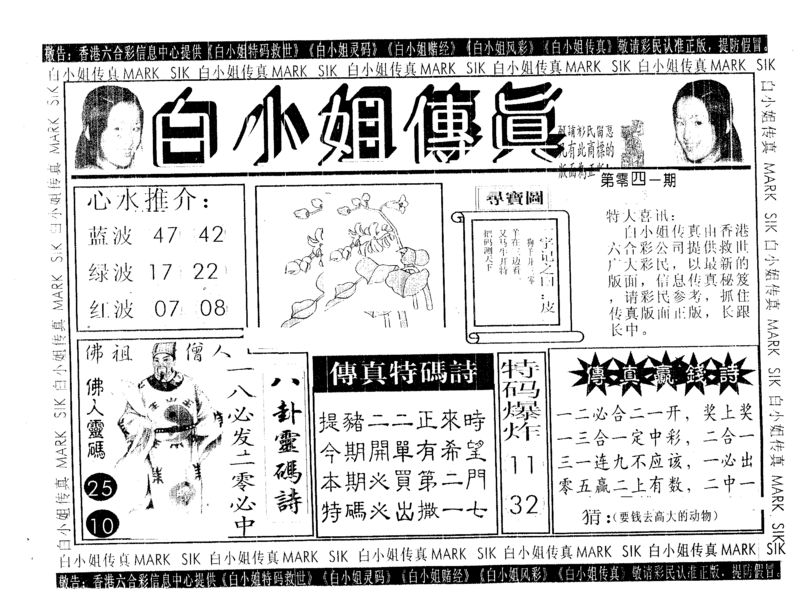 敬告：香港六合彩信息中心提供《白小姐特码救世》《白小姐灵码》《白小姐赌经》《白小姐风彩》《白小姐传真》敬请彩民认准正版，提防假冒。
白小姐传真MARK SIK 白小姐传真MARK SIK 白小姐传真MARK SIK 白小姐传真MARK SIK 白小姐传真MARK SIK
白小姐傳眞
第零四一期
心水推介：
蓝波 47 42
绿波 17 22
红波 07 08
尋寶圖
一字记之曰：皮
羊在三边看
又马生开特
把码测天下
特大喜讯：
白小姐传真由香港
六合彩公司提供救世
广大彩民，以最新的
版面，信息传真秘笈
，请彩民参考，抓住
传真版面正版，长跟
长中。
佛祖僧人
佛人靈碼
25
10
一八必发二零必中
八卦靈碼詩
傳真特碼詩
提豬二二正來時
今期開單有希望
本期必買第二門
特碼必出撒一七
特码爆炸
11
32
傳真贏錢詩
一二必合二一开，奖上奖
一三合一定中彩，二合一
三一连九不应该，一必出
零五赢二上有数，二中一
猜：(要钱去高大的动物)
白小姐传真MARK SIK 白小姐传真MARK SIK 白小姐传真MARK SIK 白小姐传真MARK SIK 白小姐传真MARK SIK
敬告：香港六合彩信息中心提供《白小姐特码救世》《白小姐灵码》《白小姐赌经》《白小姐风彩》《白小姐传真》敬请彩民认准正版，提防假冒。